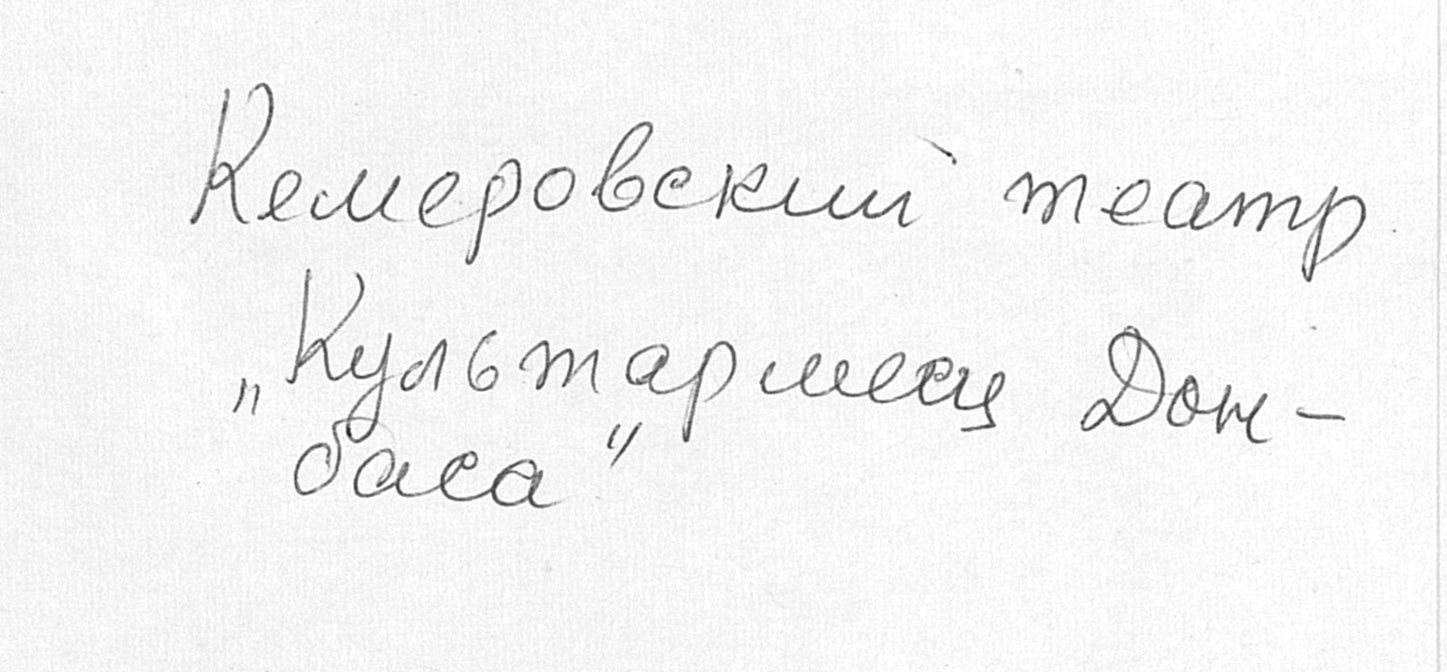 Кемеровский театр
„Культармеец Дон-
баса"